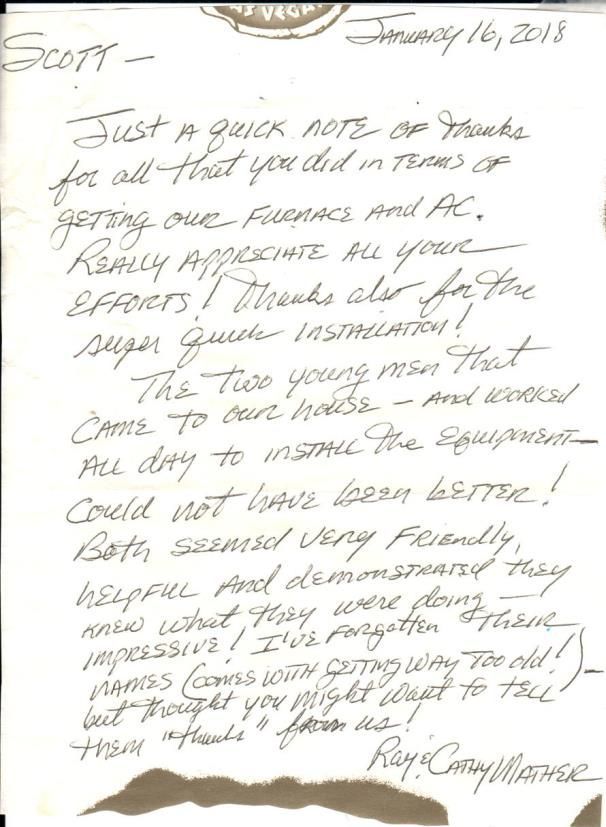 AS VEGAS
JANUARY 16, 2018
SCOTT –
JUST A QUICK NOTE OF thanks
for all that you did in TERMS OF
GETTING OUR FURNACE And AC.
REALLY APPRECIATE ALL YOUR
EFFORTS! Thanks also for the
super quick INSTALLATION!
The Two young men that
CAME TO OUR house – And WORKED
ALL dAY to INSTALL the EQUIPMENT –
Could not HAVE been BETTER!
Both SEEMED VERY FRIENdly,
HELPFUL And demonstrated they
KNEW what they were doing –
IMPRESSIVE! I'VE FORGOTTEN THEIR
NAMES (COMES WITH GETTING WAY TOO old!) –
but thought you might want to TELL
them "thanks" from us!
RAY & CATHY MATHER